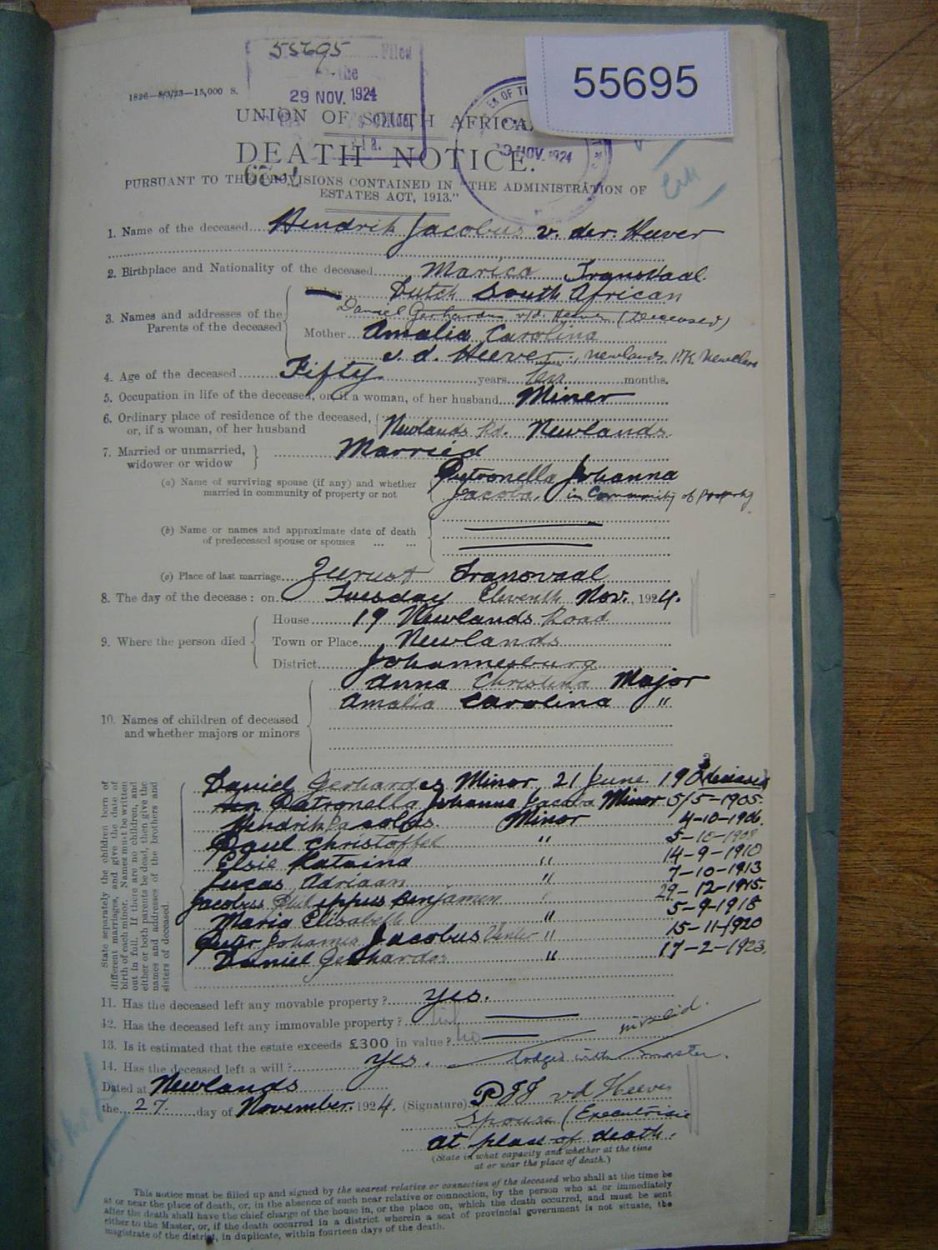 55695
Filed
the
29 NOV. 1924
55695
1826—8/3/23—15,000 S.
UNION OF SOUTH AFRICA.
29 NOV. 1924
DEATH NOTICE.
PURSUANT TO THE PROVISIONS CONTAINED IN "THE ADMINISTRATION OF
ESTATES ACT, 1913."
1. Name of the deceased Hendrik Jacobus v. der. Heever
2. Birthplace and Nationality of the deceased Marico Transvaal
Dutch South African
3. Names and addresses of the Parents of the deceased
Daniel Gerhardus v/d. Heever (Deceased)
Mother Amalia Carolina
v. d. Heever, Newlands
4. Age of the deceased Fifty years ten months.
5. Occupation in life of the deceased, or, if a woman, of her husband Miner
6. Ordinary place of residence of the deceased,
or, if a woman, of her husband Newlands Rd. Newlands
7. Married or unmarried,
widower or widow Married
(a) Name of surviving spouse (if any) and whether
married in community of property or not
Petronella Johanna
Jacoba, in Community of Property
(b) Name or names and approximate date of death
of predeceased spouse or spouses ... ...
(c) Place of last marriage Zeerust Transvaal
8. The day of the decease: on Tuesday Eleventh Nov. 1924.
9. Where the person died
House 19 Newlands Road
Town or Place Newlands
District Johannesburg
10. Names of children of deceased
and whether majors or minors
Anna Christina Major
Amalia Carolina "
State separately the children born of
different marriages, and give the date of
birth of each minor. Names must be written
out in full. If there are no children, and
either or both parents be dead, then give the
names and addresses of the brothers and
sisters of deceased.
Daniel Gerhardes Minor 21 June 19 Deceased
Petronella Johanna Jacoba Minor 5/5-1905.
Hendrik Jacobus Minor 4-10-1906
Paul Christoffel " 5-10-1908
Elsie Kataina " 14-9-1910
Lucas Adriaan " 7-10-1913
Jacobus Philippus Benjamin " 29-12-1915.
Maria Elisabeth " 5-9-1918
Johannes Jacobus Venter " 15-11-1920
Daniel Gerhardos " 17-2-1923.
11. Has the deceased left any movable property? Yes.
12. Has the deceased left any immovable property?
13. Is it estimated that the estate exceeds £300 in value? no
invalid.
14. Has the deceased left a will? Yes. lodged with master.
Dated at Newlands
the 27 day of November. 1924. (Signature) PJJ vd Heever
Spouse (Executrixe
at place of death.
(State in what capacity and whether at the time
at or near the place of death.)
This notice must be filled up and signed by the nearest relative or connection of the deceased who shall at the time be
at or near the place of death, or, in the absence of such near relative or connection, by the person who at or immediately
after the death shall have the chief charge of the house in, or the place on, which the death occurred, and must be sent
either to the Master, or, if the death occurred in a district wherein a seat of provincial government is not situate, the
magistrate of the district, in duplicate, within fourteen days of the death.